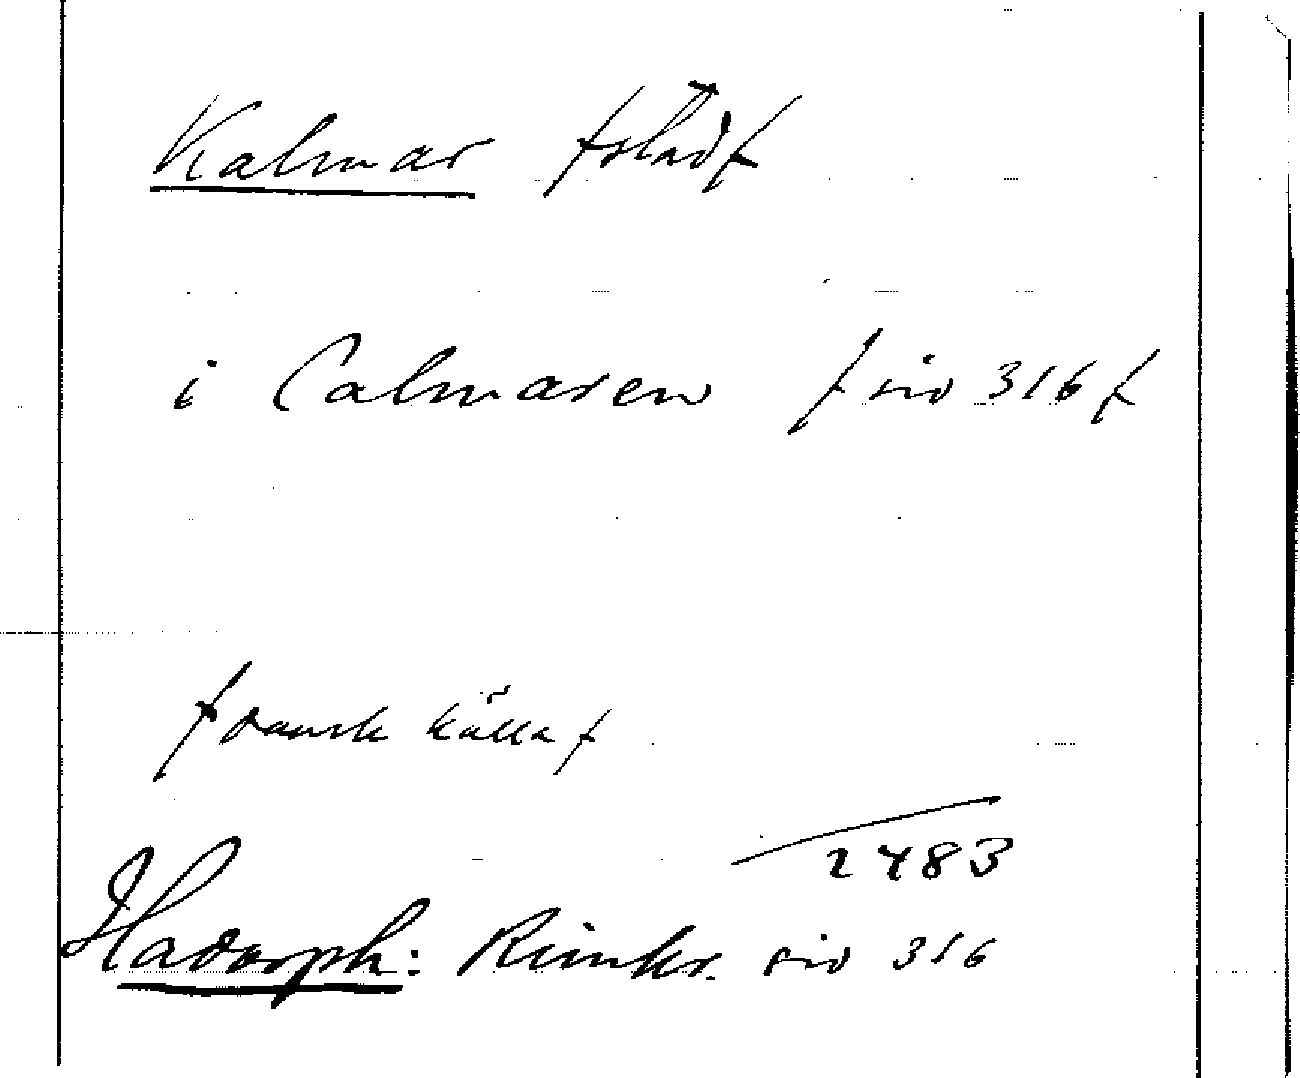 Kalmar /stad/
i Calmaren / sid 316 /
/ dansk källa /
2483
Hadorph: Rimkr. sid 316